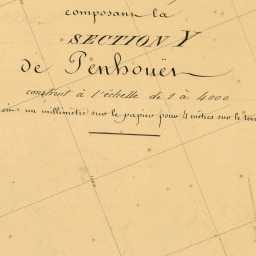 composant la
SECTION Y
de Penhouër
construit à l'échelle de 1 à 4000
un millimètre sur le papier pour 4 mètres sur le